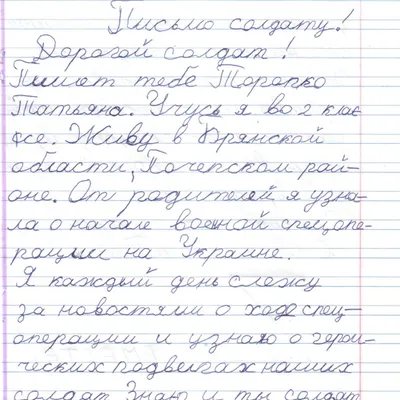 Письмо солдату!
Дорогой солдат!
Пишет тебе Торопко
Татьяна. Учусь я во 2 клас
се. Живу в Брянской
области, Почепском рай-
оне. От родителей я узна-
ла о начале военной спецопе-
рации на Украине.
Я каждый день слежу
за новостями о ходе спец-
операции и узнаю о герои-
ческих подвигах наших
солдат Знаю и ты солдат